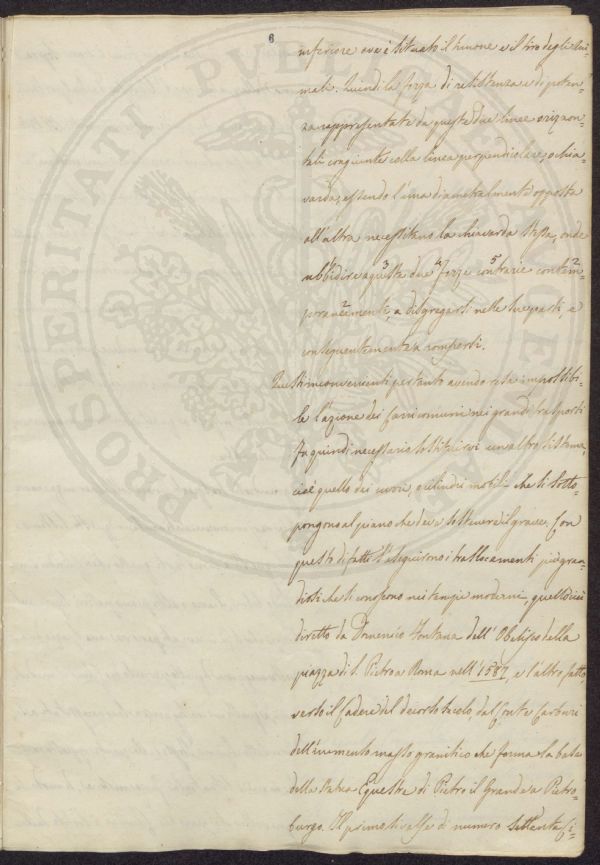 6
inferiore ove è situato il timone e il tiro degli Ani-
mali. Quindi la forza di resistenza e di poten-
za rappresentate da queste due linee orizzon-
tali congiunte colla linea perpendicolare, o chia-
varda, essendo l'una diametralmente opposta
all'altra necessitano la chiavarda stessa, onde
ubbidire a queste due forze contrarie contem-
poraneamente, a disgregarsi nelle sue parti, e
conseguentemente a rompersi.
Questi inconvenienti pertanto avendo resa impossibi-
le l'azione dei Carri comuni nei grandi trasporti
fu quindi necessario sostituirvi un altro sistema,
cioè quello dei curri, o cilindri mobili che si sotto-
pongono al piano che deve sostenere il grave. Con
questo di fatti s'eseguirono i traslocamenti più gran-
diosi che si conoscono nei tempi moderni, quello cioè
diretto da Domenico Fontana dell'Obelisco della
piazza di S. Pietro a Roma nell'1587, e l'altro fatto,
verso il cadere del decorso secolo, dal Conte Carburi
dell'immenso masso granitico che forma la base
della Statua Equestre di Pietro il Grande a Pietro-
burgo. Il primo si valse di numero settanta Ci-
PROSPERITATI PUBLICAE